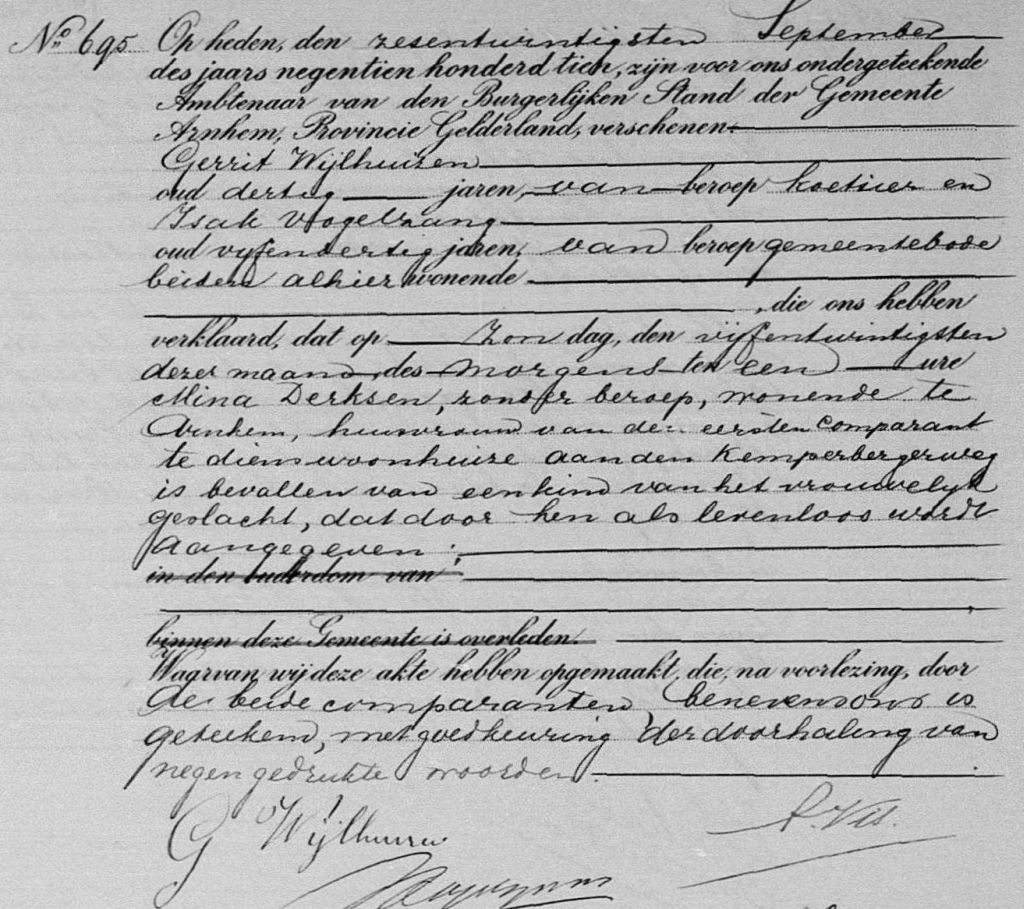 No. 695 Op heden, den zesentwintigsten September
des jaars negentien honderd tien, zijn voor ons ondergeteekende
Ambtenaar van den Burgerlijken Stand der Gemeente
Arnhem, Provincie Gelderland, verschenen:
Gerrit Wijlhuizen
oud dertig jaren, van beroep koetsier en
Isak Vogelzang
oud vijfendertig jaren, van beroep gemeentebode
beiden alhier wonende
, die ons hebben
verklaard, dat op Zondag, den vijfentwintigsten
dezer maand, des morgens ten een ure
Mina Derksen, zonder beroep, wonende te
Arnhem, huisvrouw van den eersten comparant
te diens woonhuize aan den Kemperbergerweg
is bevallen van een kind van het vrouwelijk
geslacht, dat door hen als levenloos wordt
aangegeven:
in den ouderdom van
binnen deze Gemeente is overleden.
Waarvan wij deze akte hebben opgemaakt, die, na voorlezing, door
de beide comparanten benevens ons is
geteekend, met goedkeuring der doorhaling van
negen gedrukte woorden.
G Wijlhuizen